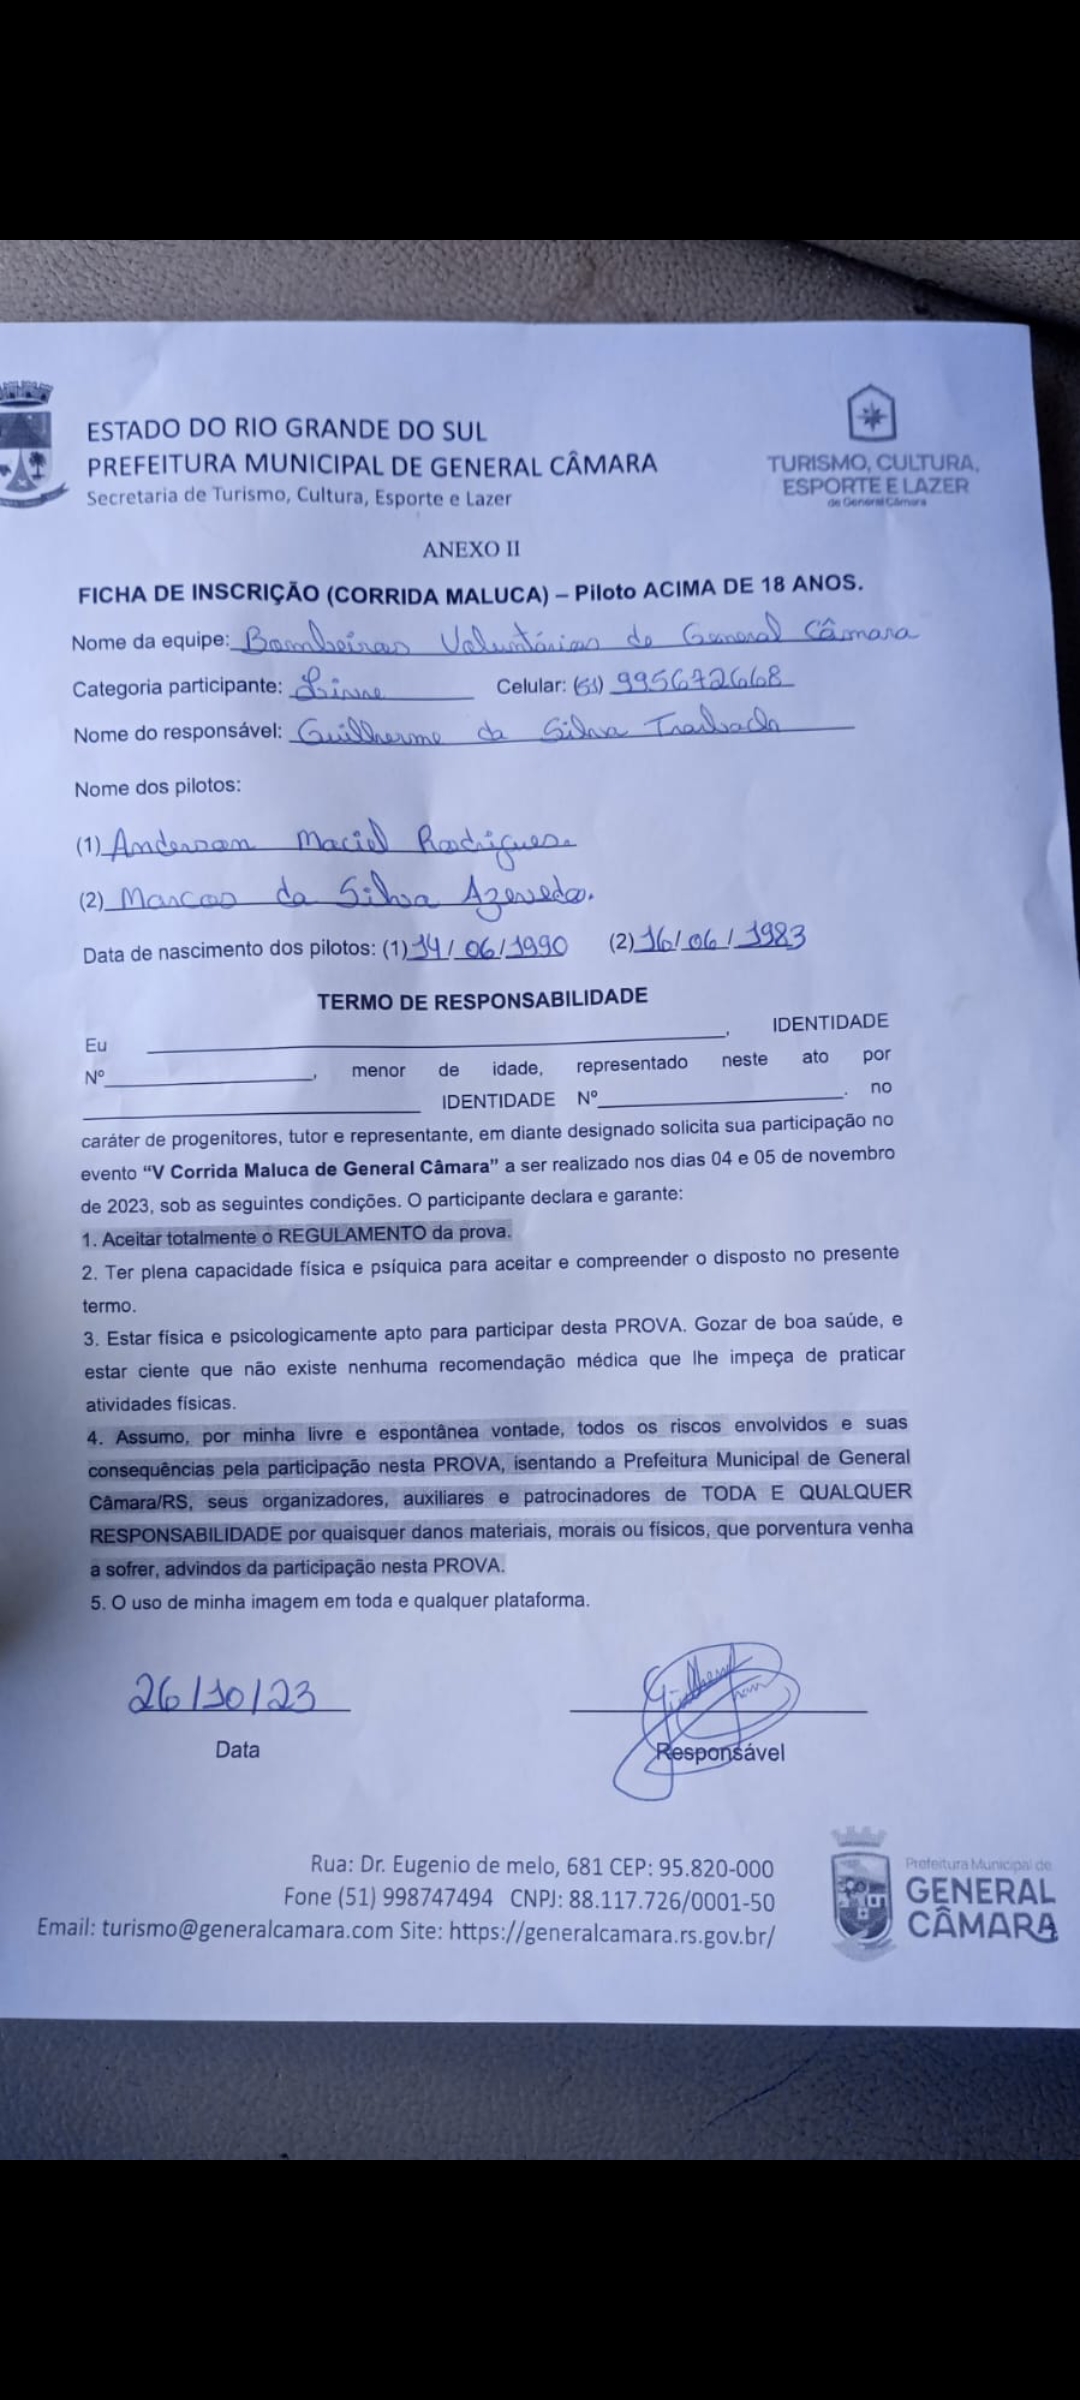 ESTADO DO RIO GRANDE DO SUL
PREFEITURA MUNICIPAL DE GENERAL CÂMARA
Secretaria de Turismo, Cultura, Esporte e Lazer
TURISMO, CULTURA,
ESPORTE E LAZER
de General Câmara
ANEXO II
FICHA DE INSCRIÇÃO (CORRIDA MALUCA) – Piloto ACIMA DE 18 ANOS.
Nome da equipe: Bombeiros Voluntários de General Câmara
Categoria participante: Livre Celular: (51) 995672668
Nome do responsável: Guilherme da Silva
Nome dos pilotos:
(1) Anderson Maciel Rodrigues.
(2) Marcos da Silva Azevedo.
Data de nascimento dos pilotos: (1) 14/06/1990 (2) 16/06/1983
TERMO DE RESPONSABILIDADE
Eu ____________________, IDENTIDADE
Nº____________________, menor de idade, representado neste ato por
____________________ IDENTIDADE Nº____________________. no
caráter de progenitores, tutor e representante, em diante designado solicita sua participação no
evento “V Corrida Maluca de General Câmara” a ser realizado nos dias 04 e 05 de novembro
de 2023, sob as seguintes condições. O participante declara e garante:
1. Aceitar totalmente o REGULAMENTO da prova.
2. Ter plena capacidade física e psíquica para aceitar e compreender o disposto no presente
termo.
3. Estar física e psicologicamente apto para participar desta PROVA. Gozar de boa saúde, e
estar ciente que não existe nenhuma recomendação médica que lhe impeça de praticar
atividades físicas.
4. Assumo, por minha livre e espontânea vontade, todos os riscos envolvidos e suas
consequências pela participação nesta PROVA, isentando a Prefeitura Municipal de General
Câmara/RS, seus organizadores, auxiliares e patrocinadores de TODA E QUALQUER
RESPONSABILIDADE por quaisquer danos materiais, morais ou físicos, que porventura venha
a sofrer, advindos da participação nesta PROVA.
5. O uso de minha imagem em toda e qualquer plataforma.
26/10/23
Data
Responsável
Rua: Dr. Eugenio de melo, 681 CEP: 95.820-000
Fone (51) 998747494 CNPJ: 88.117.726/0001-50
Email: turismo@generalcamara.com Site: https://generalcamara.rs.gov.br/
Prefeitura Municipal de
GENERAL
CÂMARA